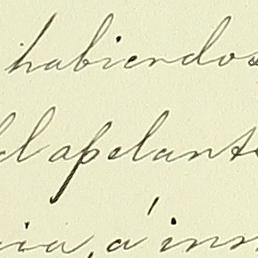 habiendos
el apelante
cia, á ins